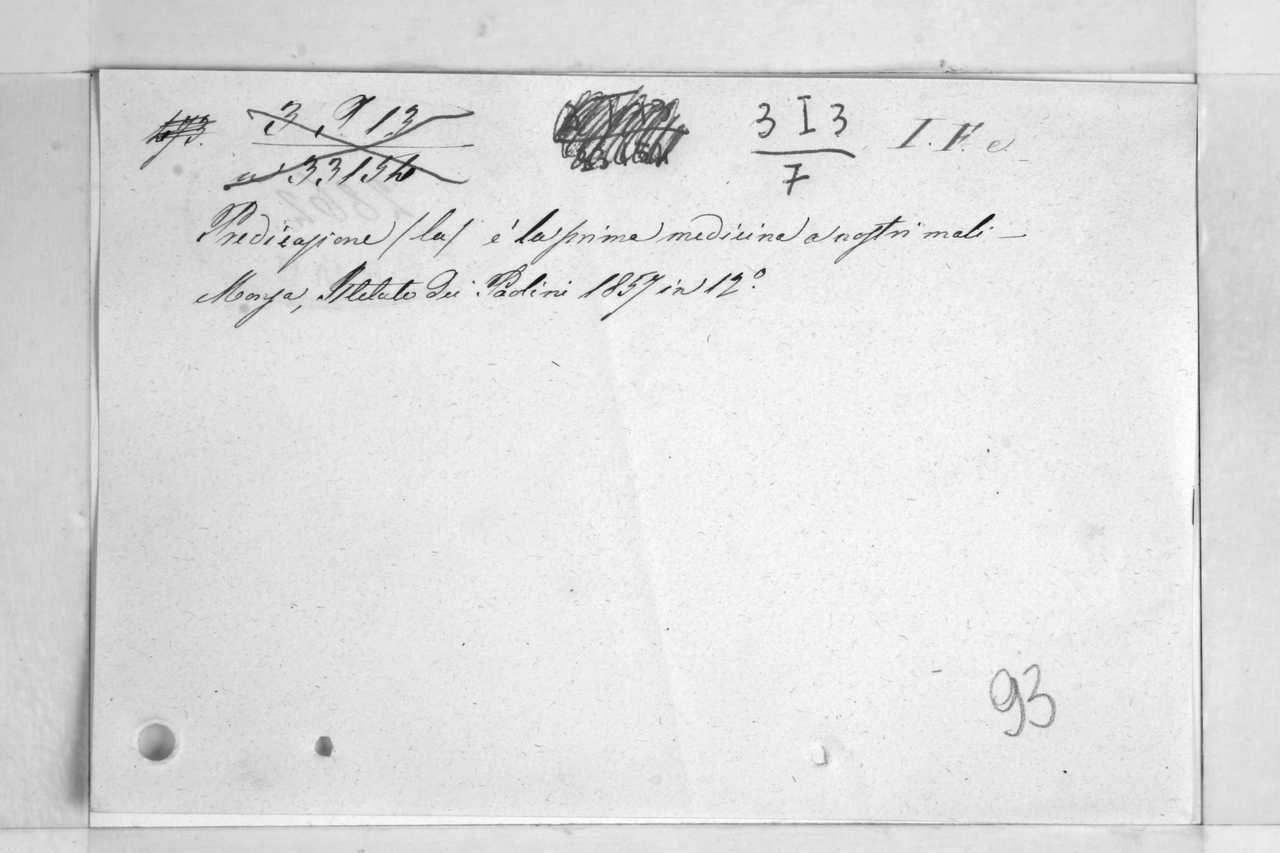 3, 9 13
33154
3 I 3
7
I. F. e
Predicazione (la) é la prima medicina a nostri mali —
Monza, Istituto dei Paolini 1857 in 12º.
93